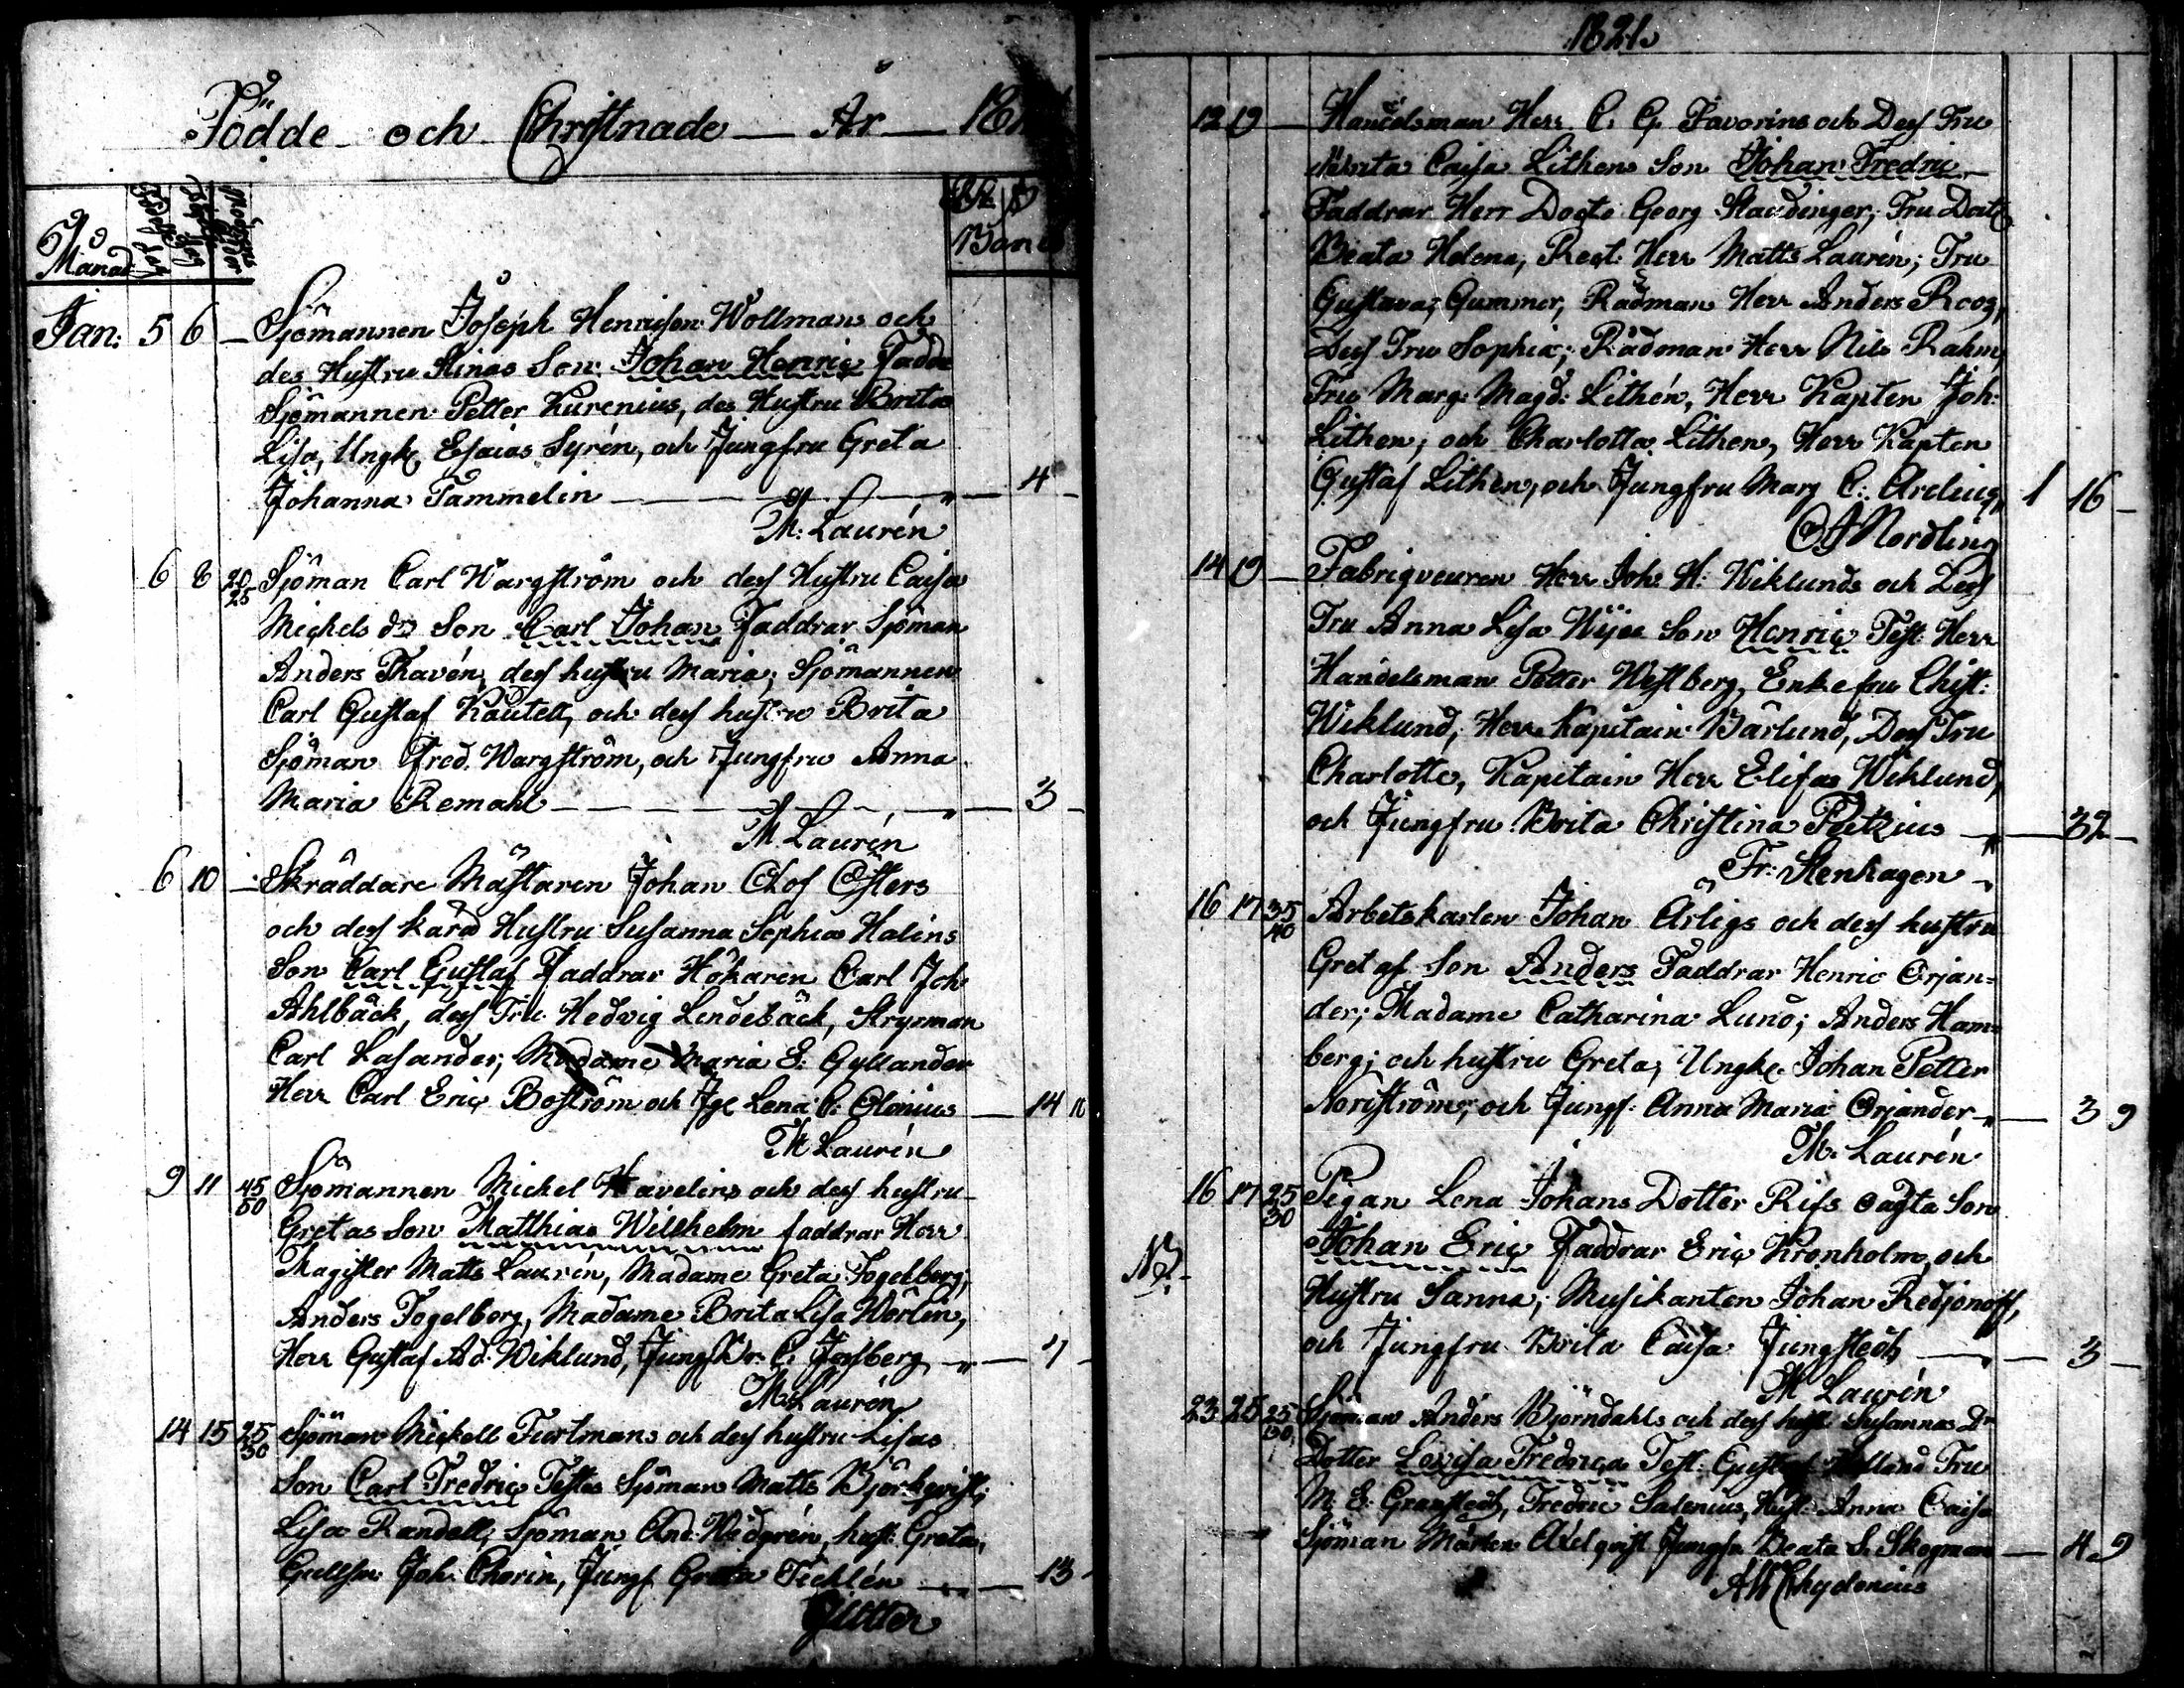 Födde och Christnade År 18
Månad
Födelse dag
Moderens ålder
Banco
Jan: 5 6 – Sjömannen Joseph Henricson Wollmans och
des Hustru Stinas Son Johan Henric Fadd
Sjömannen Petter Kurenius, des Hustru Brita
Lisa, Ungk Esaias Syrén, och Jungfru Greta
Johanna Tammelin 4
M: Laurén
6 8 20/25 Sjöman Carl Wargström och dess Hustru Caisa
Mickels dr Son Carl Johan Faddrar Sjöman
Anders Thavén, dess hustru Maria; Sjömannen
Carl Gustaf Kautell, och dess hustru Brita
Sjöman Fred. Wargström, och Jungfru Anna
Maria Remahl 3
M Laurén
6 10 – Skräddare Mästaren Johan Olof Östers
och dess kära Hustru Susanna Sophia Halins
Son Carl Gustaf Faddrar Hökaren Carl Joh
Ahlbäck, dess Fru Hedvig Lindebäck, Styrman
Carl Lasander; Madame Maria E: Gyllander
Herr Carl Eric Boström och Lena C: 14
M Laurén
9 11 45/50 Sjömannen Mickel Havelins och dess hustru
Gretas Son Matthias Willhelm faddrar Herr
Magister Matts Laurén, Madame Greta Fogelberg,
Anders Fogelberg, Madame Brita Lisa Wörlin,
Herr Gustaf Ad. Wiklund, Jungf Br: C: Forsberg 7
M: Laurén
14 15 25/30 Sjöman Mickell Fiertmans och dess hustru Lisas
Son Carl Fredric Testes Sjöman Matts Björkqvist;
Lisa Randell, Sjöman And: Widgrén, hust: Greta,
Joh: Chorin, Jungf Greta Ticklén 13
1821.
12 19 – Handelsman Herr C. G. Favorins och Dess Fru
Brita Caisa Lithens Son Johan Fredric
Faddrar Herr Docto Georg Staudinger, Fru
Beata Helena, Regt: Herr Matts Laurén; Fru
Gustava Gummer, Rådman Herr Anders Roos,
Dess Fru Sophia; Rådman Herr Nils Rahm,
Fru Marg: Magd: Lithén, Herr Kapten Joh:
Lithen, och Charlotta Lithen, Herr Kapten
Gustaf Lithen, och Jungfru Marg C: 1 16
Nordling
14 19 – Fabriqveuren Herr Joh: H: Wiklunds och Dess
Fru Anna Lisa Son Henric Test: Herr
Handelsman Petter Westberg, Enkefru Chist:
Wiklund, Herr Kapitain Bärlund, Dess Fru
Charlotte, Kapitain Herr Elifas Wiklund,
och Jungfru Brita Christina Peitzius 32
Fr: Stenhagen
16 17 35/40 Arbetskarlen Johan Ärligs och dess hustru
Gretas Son Anders Faddrar Henric Örjan=
der; Madame Catharina Lund; Anders Ham=
berg; och hustru Greta; Ungk. Johan Petter
Norrström; och Jungf: Anna Maria Örjander 3 9
M. Laurén
16 17 25/30 Pigan Lena Johans Dotter Rifs oägta Son
NB. Johan Eric Faddrar Eric Kronholm och
Hustru Sanna; Musikanten Johan Redjonoff,
och Jungfru Brita Caisa Jungstedt 3
M Laurén
23 25 25/30 Sjöman Anders Björndahls och dess hust Susannas Dr
Dotter Lovisa Fredrica Test: Gustaf Fru
M: E: Granstedt, Fredric Salenius, Hust: Anna Caisa
Sjöman Mårten Axelqvist Jungfr Beata S. Skogman 4 9
Chydenius